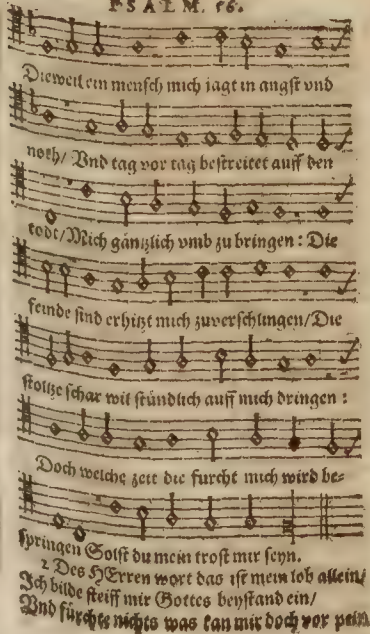 PSALM. 56.
Dieweil ein mensch mich jagt in angst vnd
noth/ Vnd tag vor tag bestreitet auff den
todt/Mich gäntzlich vmb zu bringen: Die
feinde sind erhitzt mich zuverschlingen/Die
stoltze schar wil stündlich auff mich dringen:
Doch welche zeit die furcht mich wird be-
springen Solst du mein trost mir seyn.
2 Des HErren wort das ist mein lob allein/
Ich bilde steiff mir Gottes beystand ein/
Vnd fürchte nichts was kan mir doch vor pein